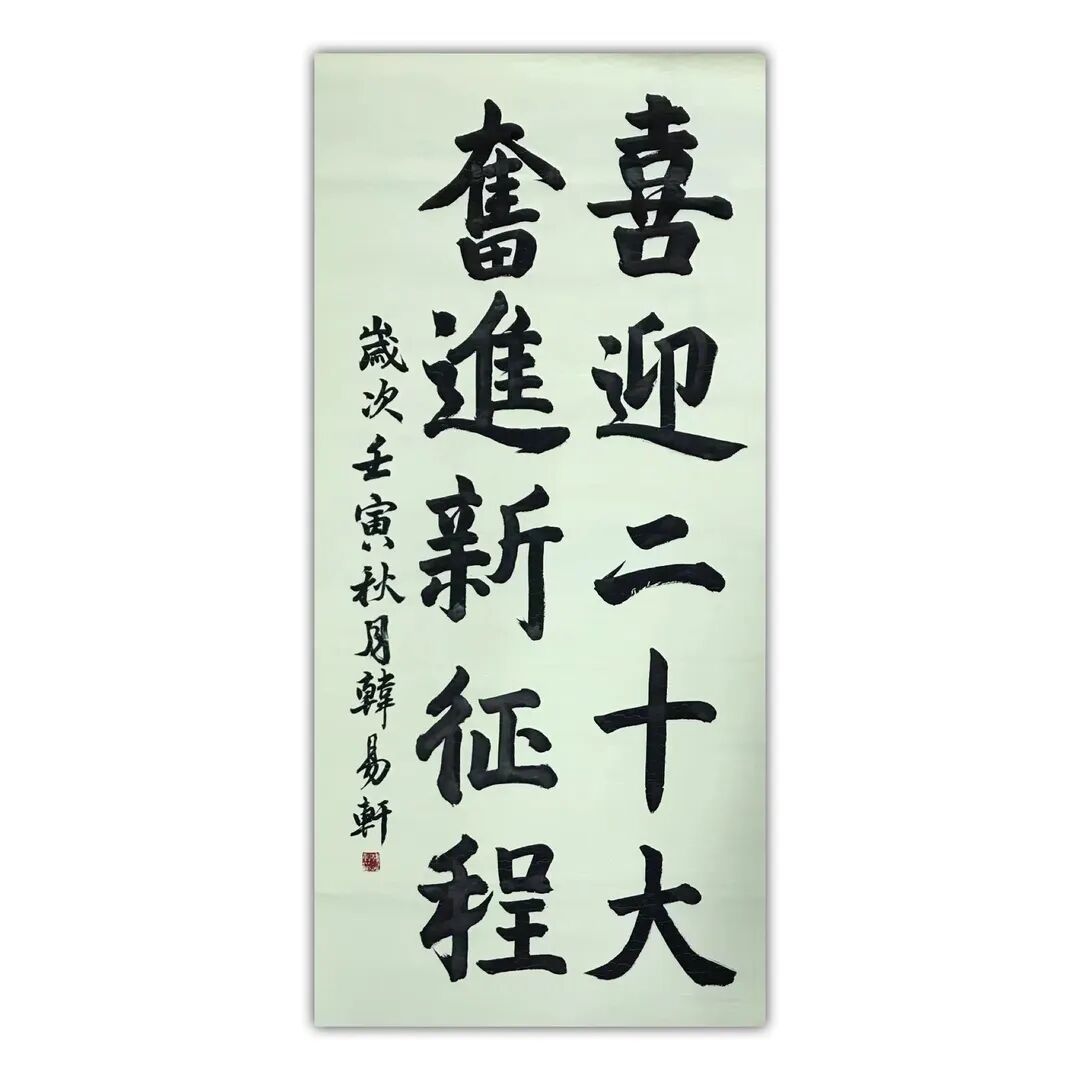 喜迎二十大
奮進新征程
歲次壬寅秋月韓易軒